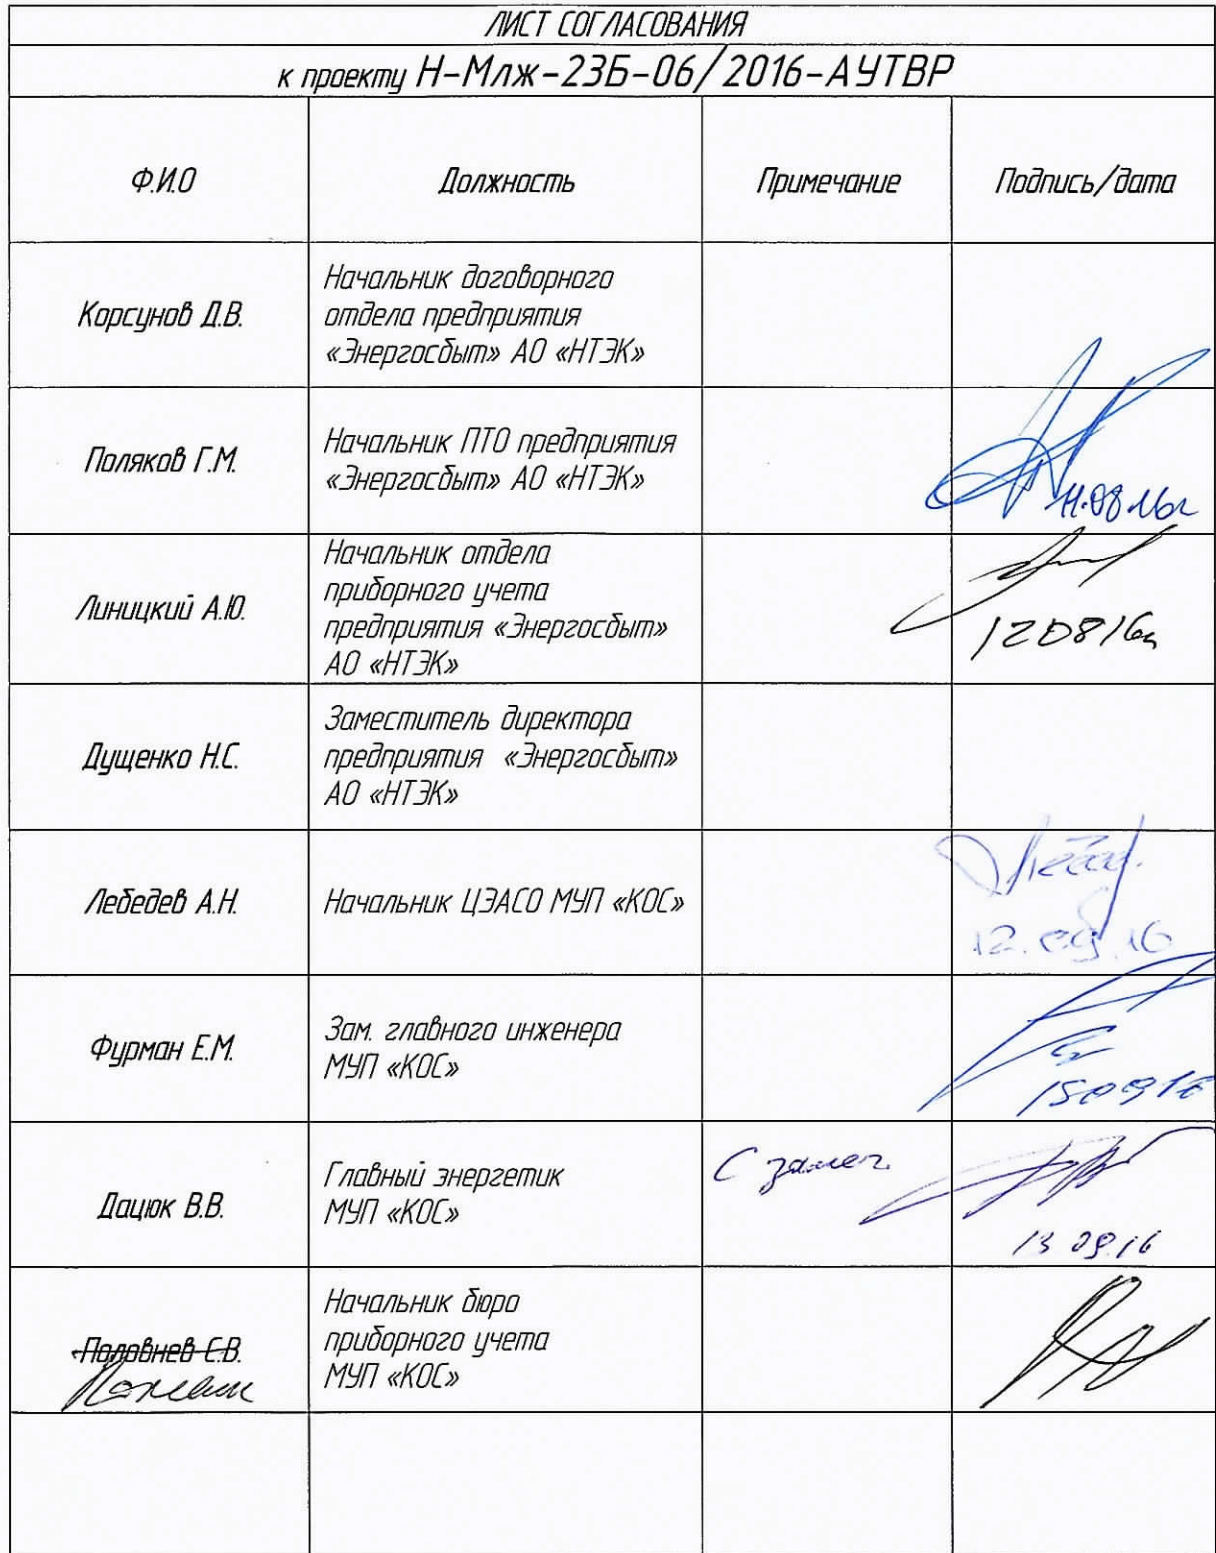 ЛИСТ СОГЛАСОВАНИЯ
к проекту Н-Млж-23Б-06/2016-АУТВР
Ф.И.О
Должность
Примечание
Подпись/дата
Корсунов Д.В.
Начальник договорного
отдела предприятия
«Энергосбыт» АО «НТЭК»
Поляков Г.М.
Начальник ПТО предприятия
«Энергосбыт» АО «НТЭК»
11.08.16г
Линицкий А.Ю.
Начальник отдела
приборного учета
предприятия «Энергосбыт»
АО «НТЭК»
120816г
Дущенко Н.С.
Заместитель директора
предприятия «Энергосбыт»
АО «НТЭК»
Лебедев А.Н.
Начальник ЦЭАСО МУП «КОС»
12.09.16
Фурман Е.М.
Зам. главного инженера
МУП «КОС»
150916
Дацюк В.В.
Главный энергетик
МУП «КОС»
С замеч.
13 09 16
Половнев С.В.
Начальник бюро
приборного учета
МУП «КОС»